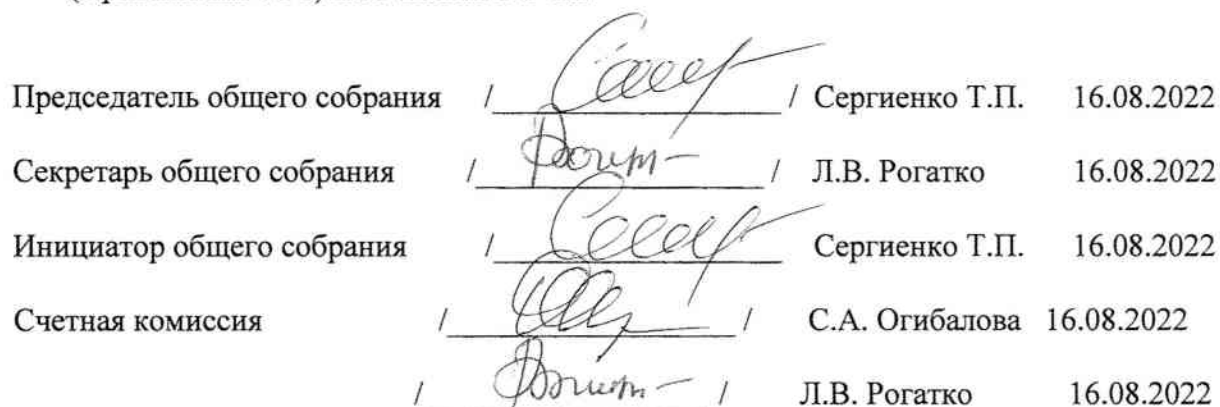 Председатель общего собрания / / Сергиенко Т.П. 16.08.2022
Секретарь общего собрания / / Л.В. Рогатко 16.08.2022
Инициатор общего собрания / / Сергиенко Т.П. 16.08.2022
Счетная комиссия / / С.А. Огибалова 16.08.2022
/ / Л.В. Рогатко 16.08.2022